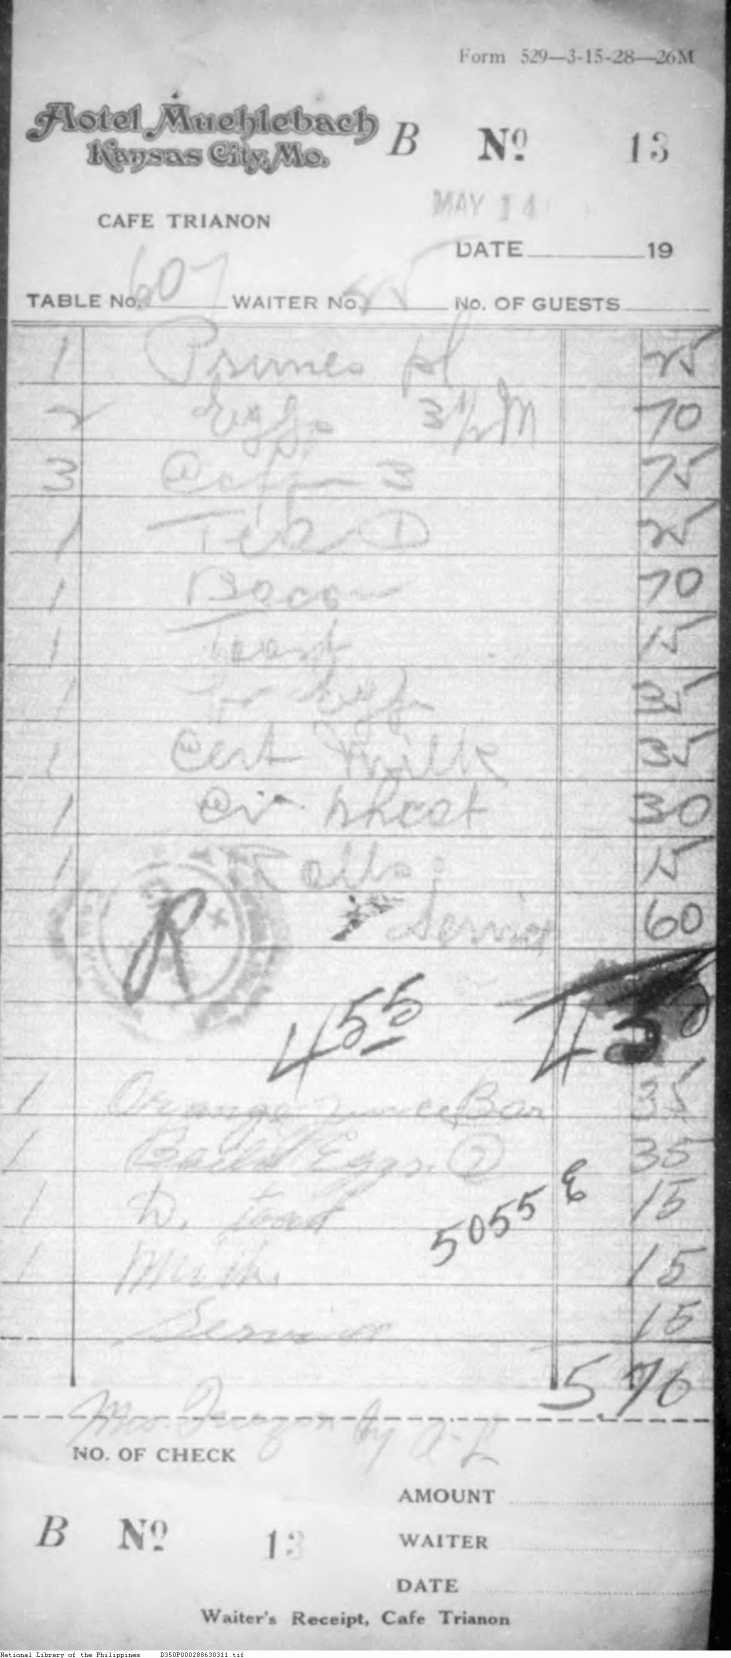 Form 529—3-15-28—26M
Hotel Muehlebach
Kansas City, Mo.
B No 13
MAY 14
CAFE TRIANON
DATE 19
TABLE No. 607 WAITER No. 55 No. OF GUESTS
1 Prunes pl 25
2 Eggs 3 1/2 M 70
3 Coffee 3 75
1 Tea 1 25
1 Bacon 70
1 Toast 15
1 Eggs 35
1 Cert Milk 35
1 Wheat 30
1 Rolls 15
R Service 60
4 55 4
1 Orange Juice Bar 35
1 Boiled Eggs 2 35
1 D. toast 15
5055 E
1 Milk 15
Service 15
5.70
Mrs. by
NO. OF CHECK
AMOUNT
B No 13
WAITER
DATE
Waiter's Receipt, Cafe Trianon
National Library of the Philippines D350P000288630311.tif